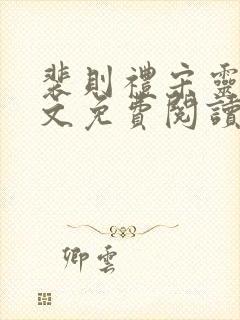 裴則禮宋靈
文免費閱讀
卿雲